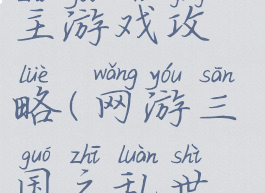 主游戏攻
lüè wǎng yóu sān
略(网游三
guó zhī luàn shì
国之乱世